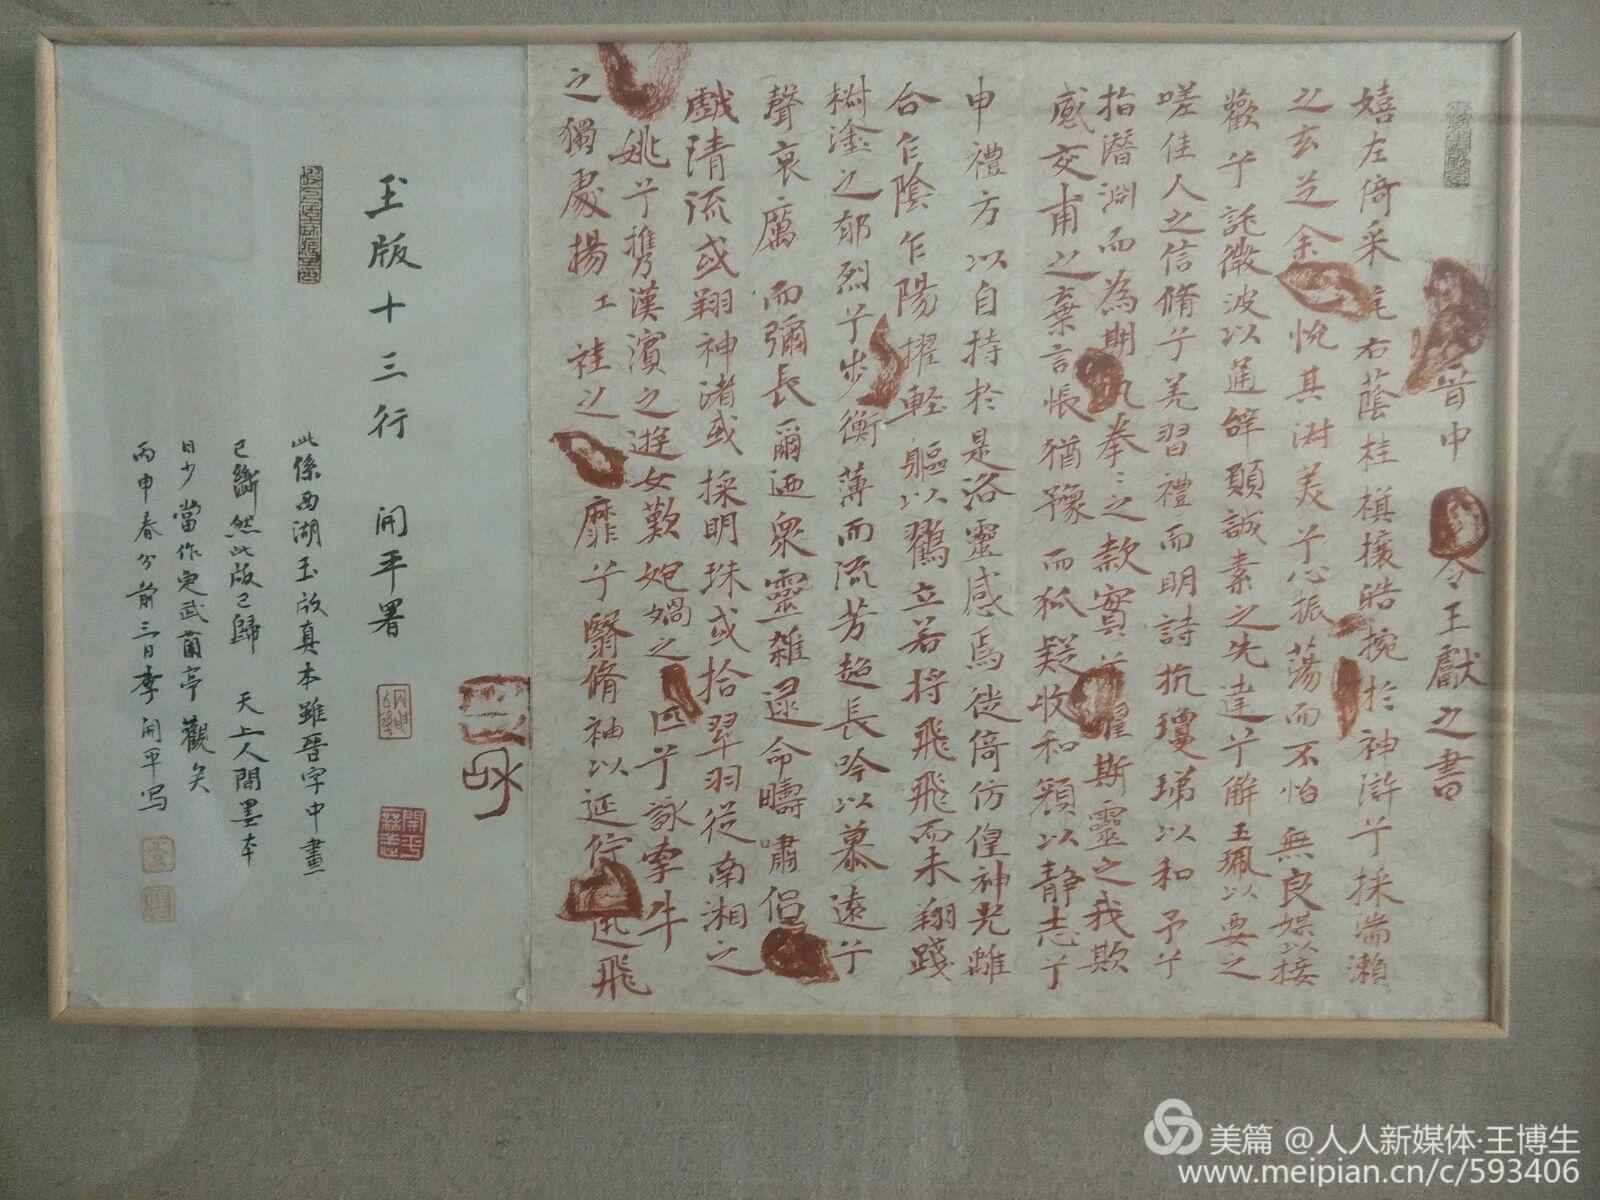 晉中 令王獻之書
嬉左倚采旄右蔭桂棋攘皓捥於神滸兮採湍瀨
之玄芝余 悅其淋美兮心振蕩而不怡無良媒以接
歡兮託微波以通辭願誠素之先達兮解玉珮以要之
嗟佳人之信脩兮羌習禮而明詩抗瓊珶以和予兮
指潛淵而為期 執拳〻之款實兮 懼斯靈之我欺
感交甫之棄言悵猶豫而狐疑收和顏以靜志兮
申禮方以自持於是洛靈感焉徙倚仿偟神光離
合乍陰乍陽擢輕軀以鶴立若將飛飛而未翔踐
樹塗之郁烈兮步衡薄而流芳超長吟以慕遠兮
聲哀厲而彌長爾迺衆靈雜遝命疇嘯侶
戲清流或翔神渚或採明珠或拾翠羽從南湘之
姚兮攜漢濱之遊女歎媧之 匹兮詠牽牛
之獨處揚 袿之 靡兮翳脩袖以延佇 迅飛
玉版十三行 開平署
此係西湖玉版真本雖晉字中畫
已斷然此版已歸 天上人間墨本
日少當作定武蘭亭觀矣
丙申春分前三日李開平写
美篇 @人人新媒体·王博生
www.meipian.cn/c/593406